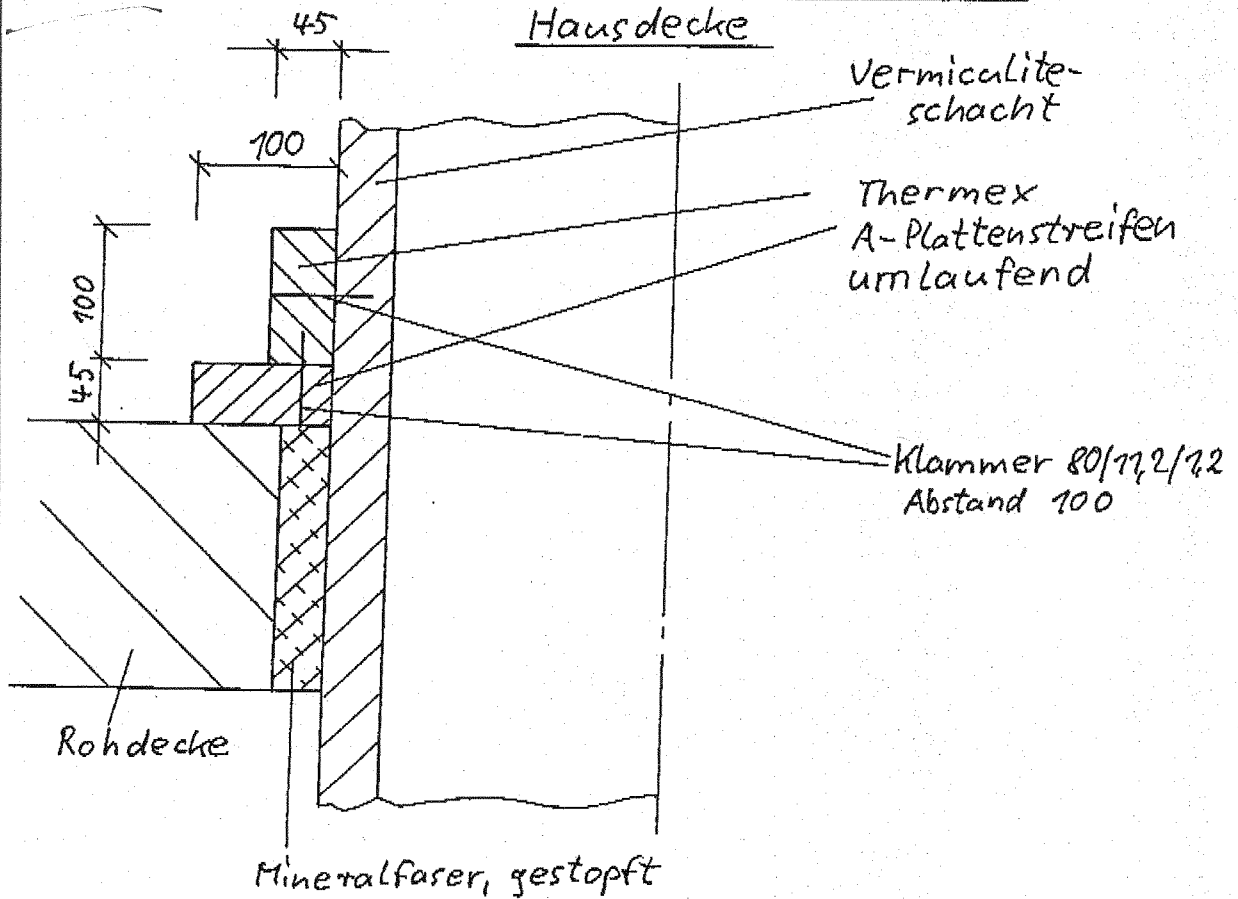 Hausdecke
45
100
100
45
Vermiculite-
schacht
Thermex
A-Plattenstreifen
umlaufend
Klammer 80/11,2/1,2
Abstand 100
Rohdecke
Mineralfaser, gestopft